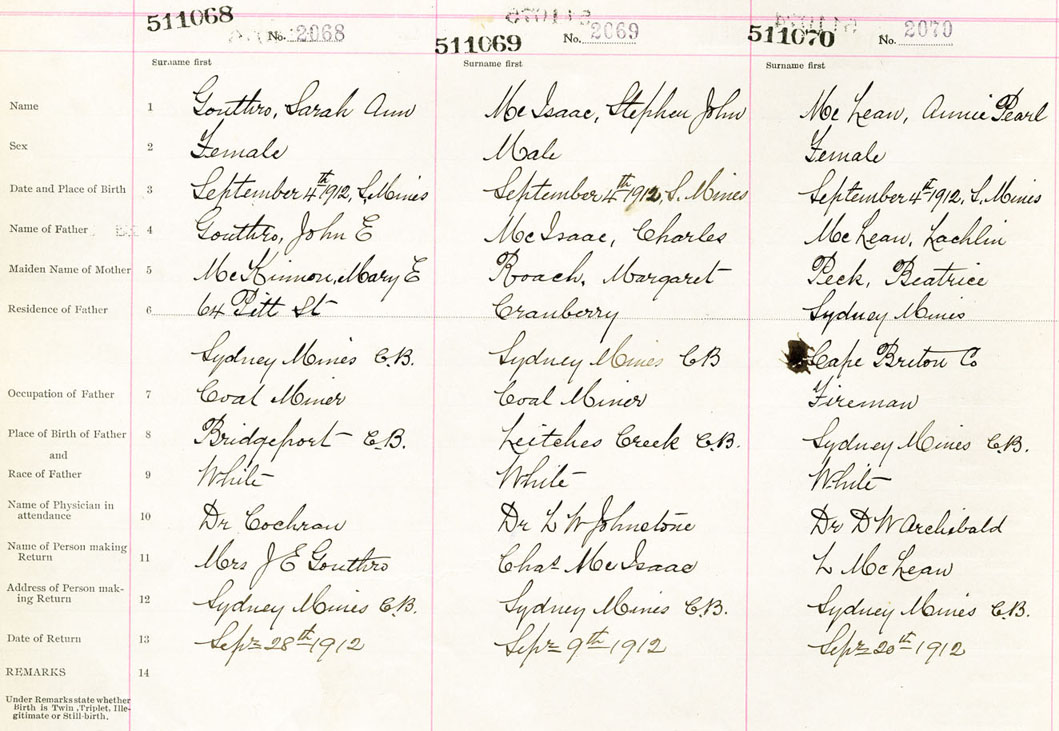 511068 No. 2068
511069 No. 2069
511070 No. 2070
Surname first Surname first Surname first
Name 1 Gouthro, Sarah Ann McIsaac, Stephen John McLean, Annie Pearl
Sex 2 Female Male Female
Date and Place of Birth 3 September 4th 1912, S. Mines September 4th 1912, S. Mines September 4th 1912, S. Mines
Name of Father 4 Gouthro, John E McIsaac, Charles McLean, Lachlin
Maiden Name of Mother 5 McKinnon, Mary E Roach, Margaret Peck, Beatrice
Residence of Father 6 64 Pitt St Cranberry Sydney Mines
Sydney Mines C.B. Sydney Mines CB Cape Breton Co
Occupation of Father 7 Coal Miner Coal Miner Fireman
Place of Birth of Father 8 Bridgeport C.B. Leitches Creek C.B. Sydney Mines C.B.
and
Race of Father 9 White White White
Name of Physician in
attendance 10 Dr Cochran Dr L W Johnstone Dr D W Archibald
Name of Person making
Return 11 Mrs J E Gouthro Chas McIsaac L McLean
Address of Person mak-
ing Return 12 Sydney Mines C.B. Sydney Mines C.B. Sydney Mines C.B.
Date of Return 13 Sept 28th 1912 Sept 9th 1912 Sept 20th 1912
REMARKS 14
Under Remarks state whether
Birth is Twin, Triplet, Ille-
gitimate or Still-birth.